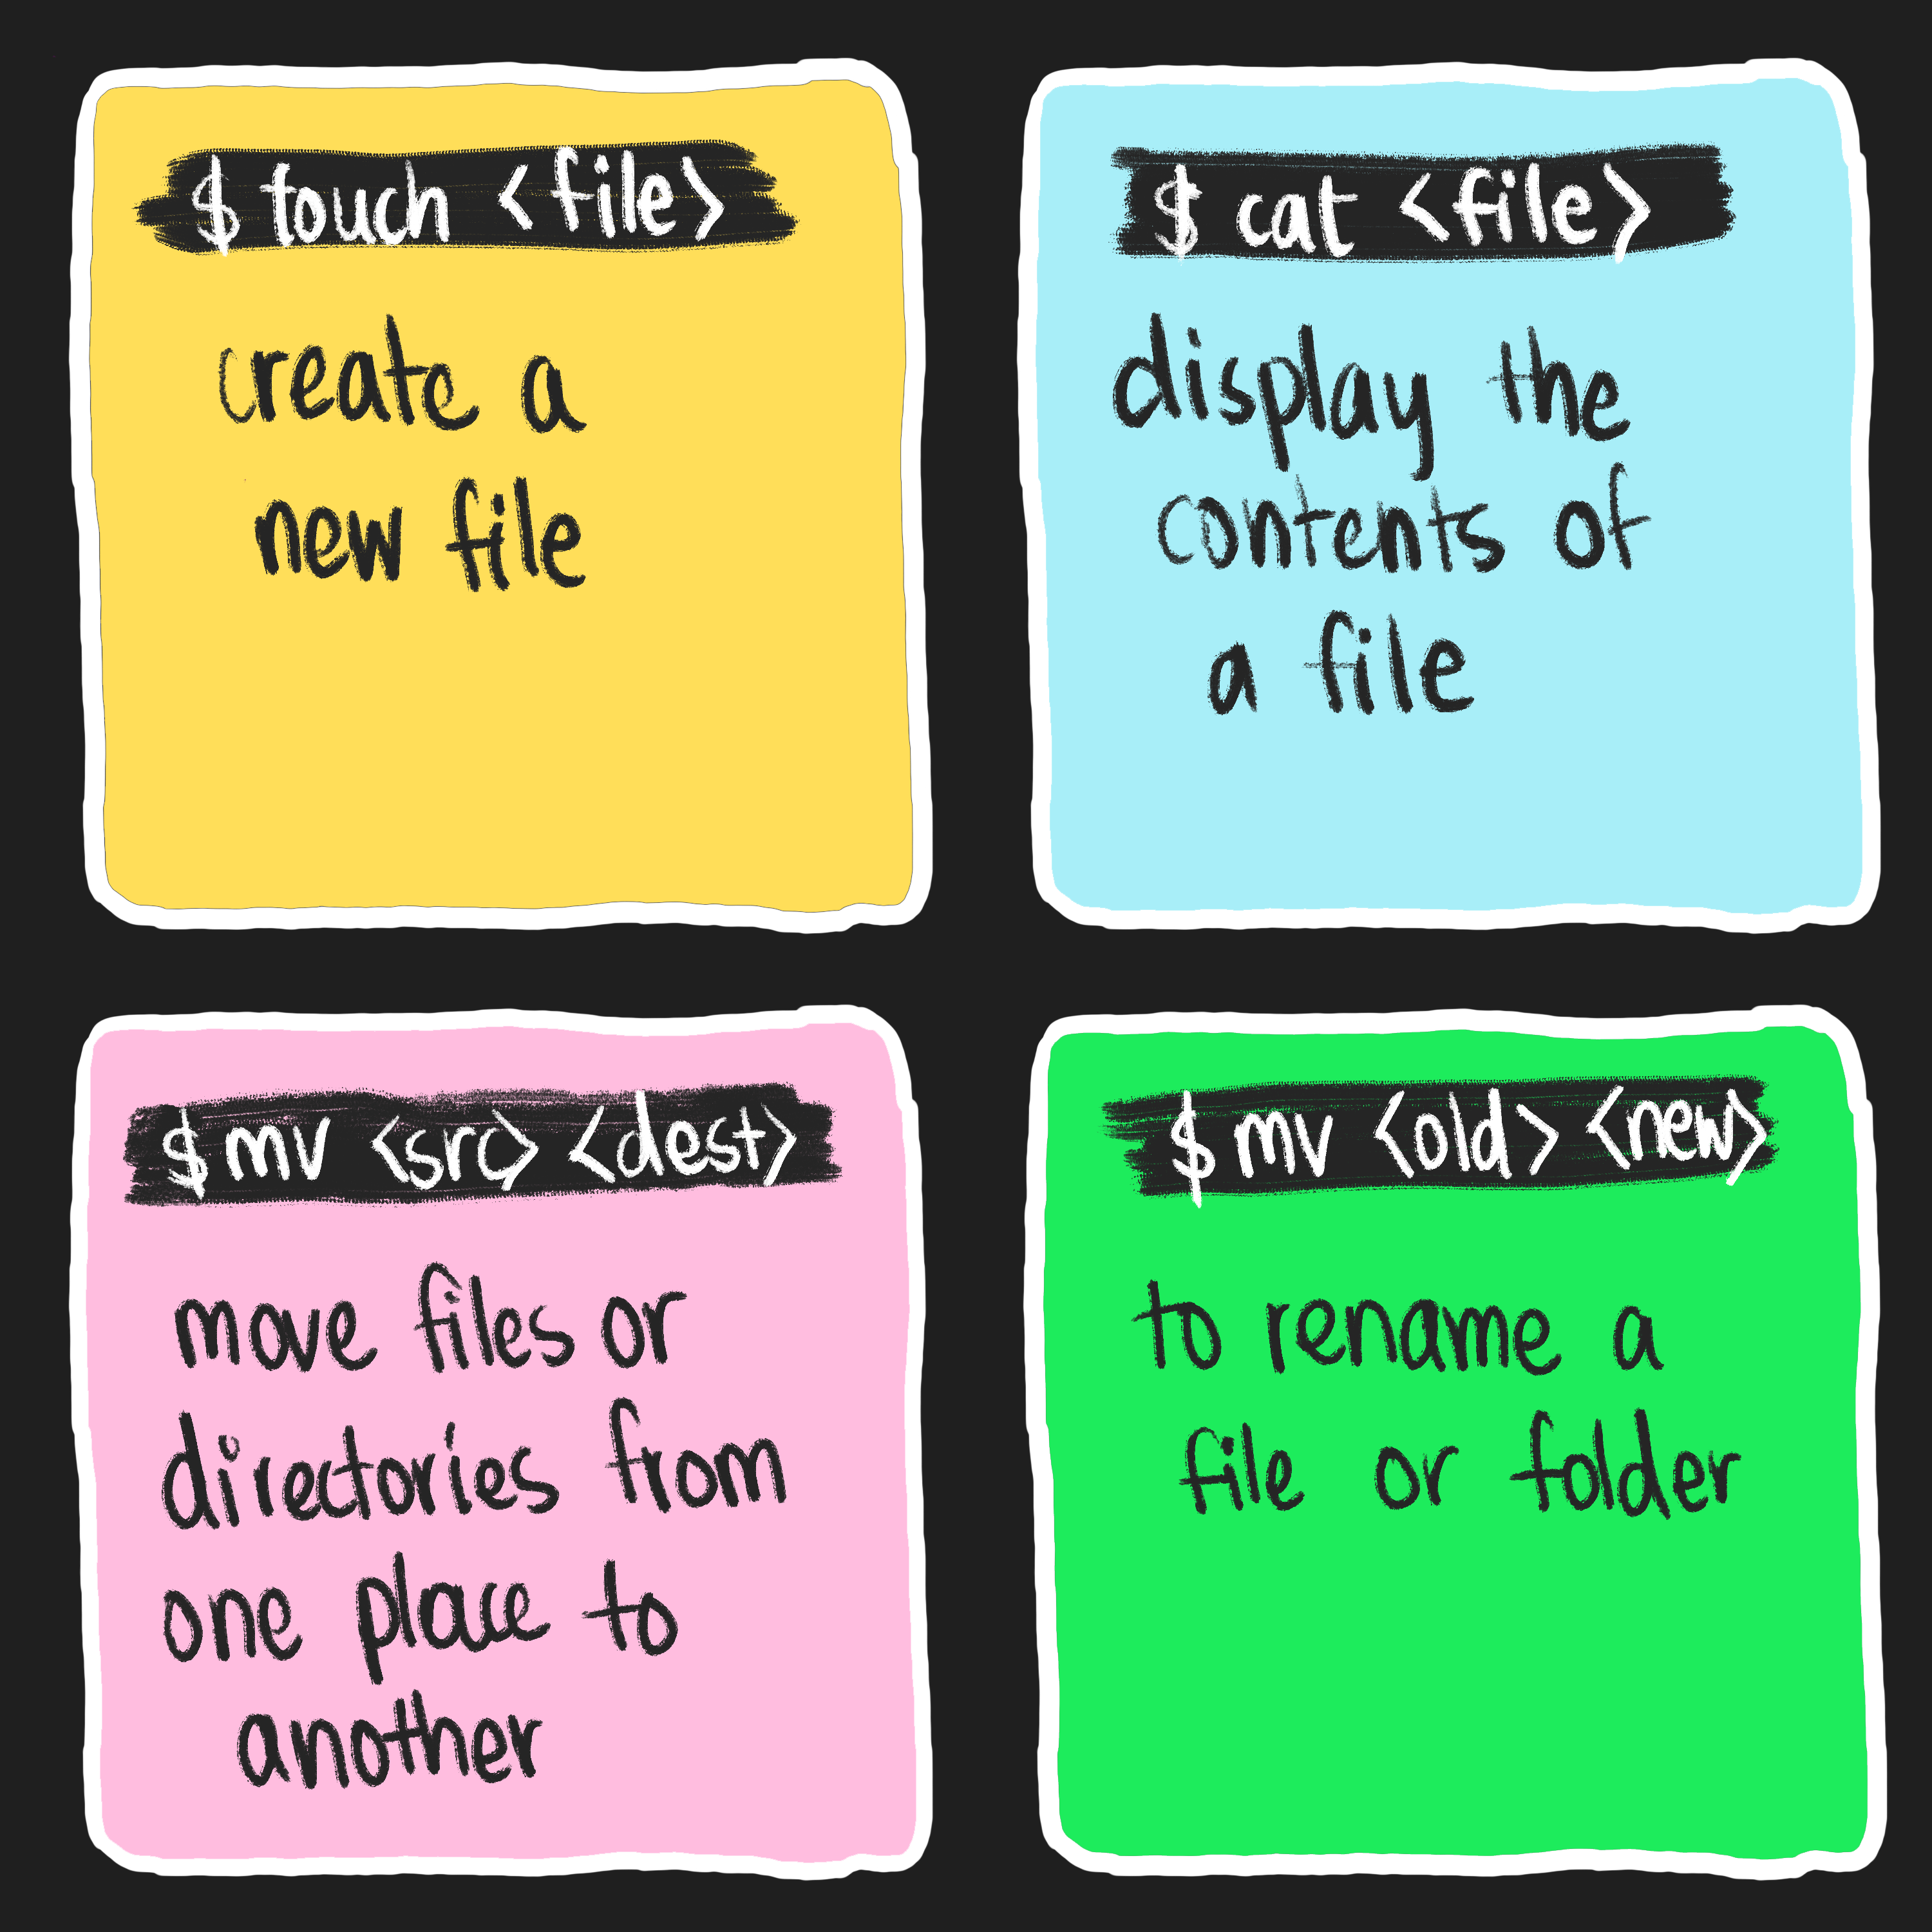 $ touch <file>
create a
new file
$ cat <file>
display the
contents of
a file
$ mv <src> <dest>
move files or
directories from
one place to
another
$ mv <old> <new>
to rename a
file or folder